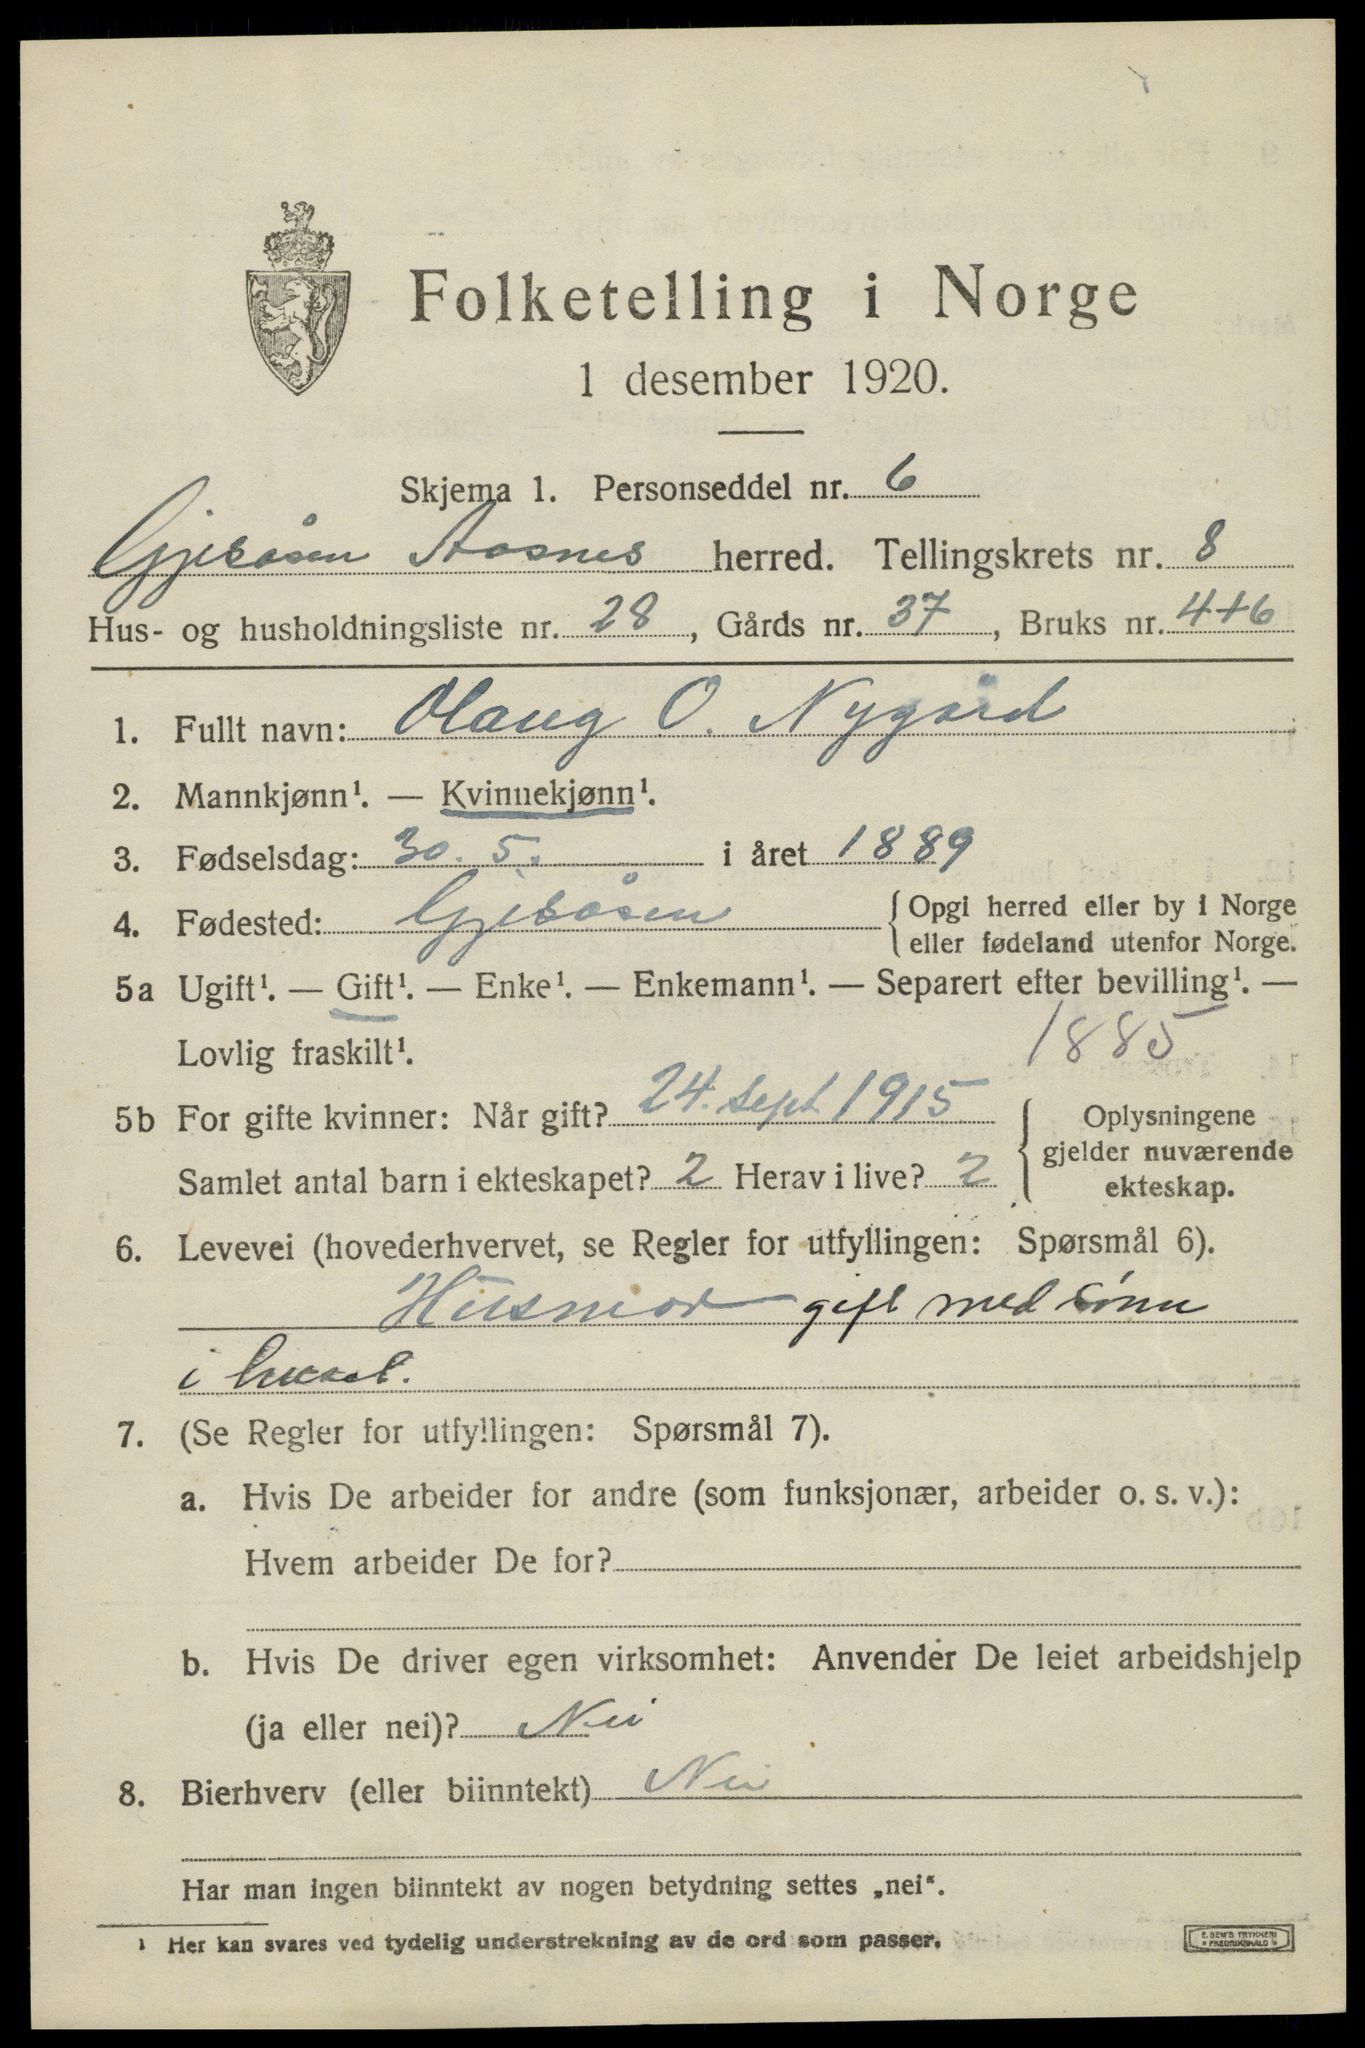 Folketelling i Norge
1 desember 1920.
Skjema 1. Personseddel nr. 6
Gjesåsen Aasnes herred. Tellingskrets nr. 8
Hus- og husholdningsliste nr. 28, Gårds nr. 37, Bruks nr. 4+6
1. Fullt navn: Olaug O. Nygård
2. Mannkjønn¹. — Kvinnekjønn¹.
3. Fødselsdag: 30. 5. i året 1889
4. Fødested: Gjesåsen {Opgi herred eller by i Norge
eller fødeland utenfor Norge.
5a Ugift¹. — Gift¹. — Enke¹. — Enkemann¹. — Separert efter bevilling¹. —
Lovlig fraskilt¹. 1885
5b For gifte kvinner: Når gift? 24. sept. 1915
Samlet antal barn i ekteskapet? 2 Herav i live? 2
{Oplysningene
gjelder nuværende
ekteskap.
6. Levevei (hovederhvervet, se Regler for utfyllingen: Spørsmål 6).
Husmor gift med sønn
i huset.
7. (Se Regler for utfyllingen: Spørsmål 7).
a. Hvis De arbeider for andre (som funksjonær, arbeider o. s. v.):
Hvem arbeider De for?
b. Hvis De driver egen virksomhet: Anvender De leiet arbeidshjelp
(ja eller nei)? Nei
8. Bierhverv (eller biinntekt) Nei
Har man ingen biinntekt av nogen betydning settes „nei“.
¹ Her kan svares ved tydelig understrekning av de ord som passer.
E. SEM'S TRYKKERI
FREDRIKSHALD